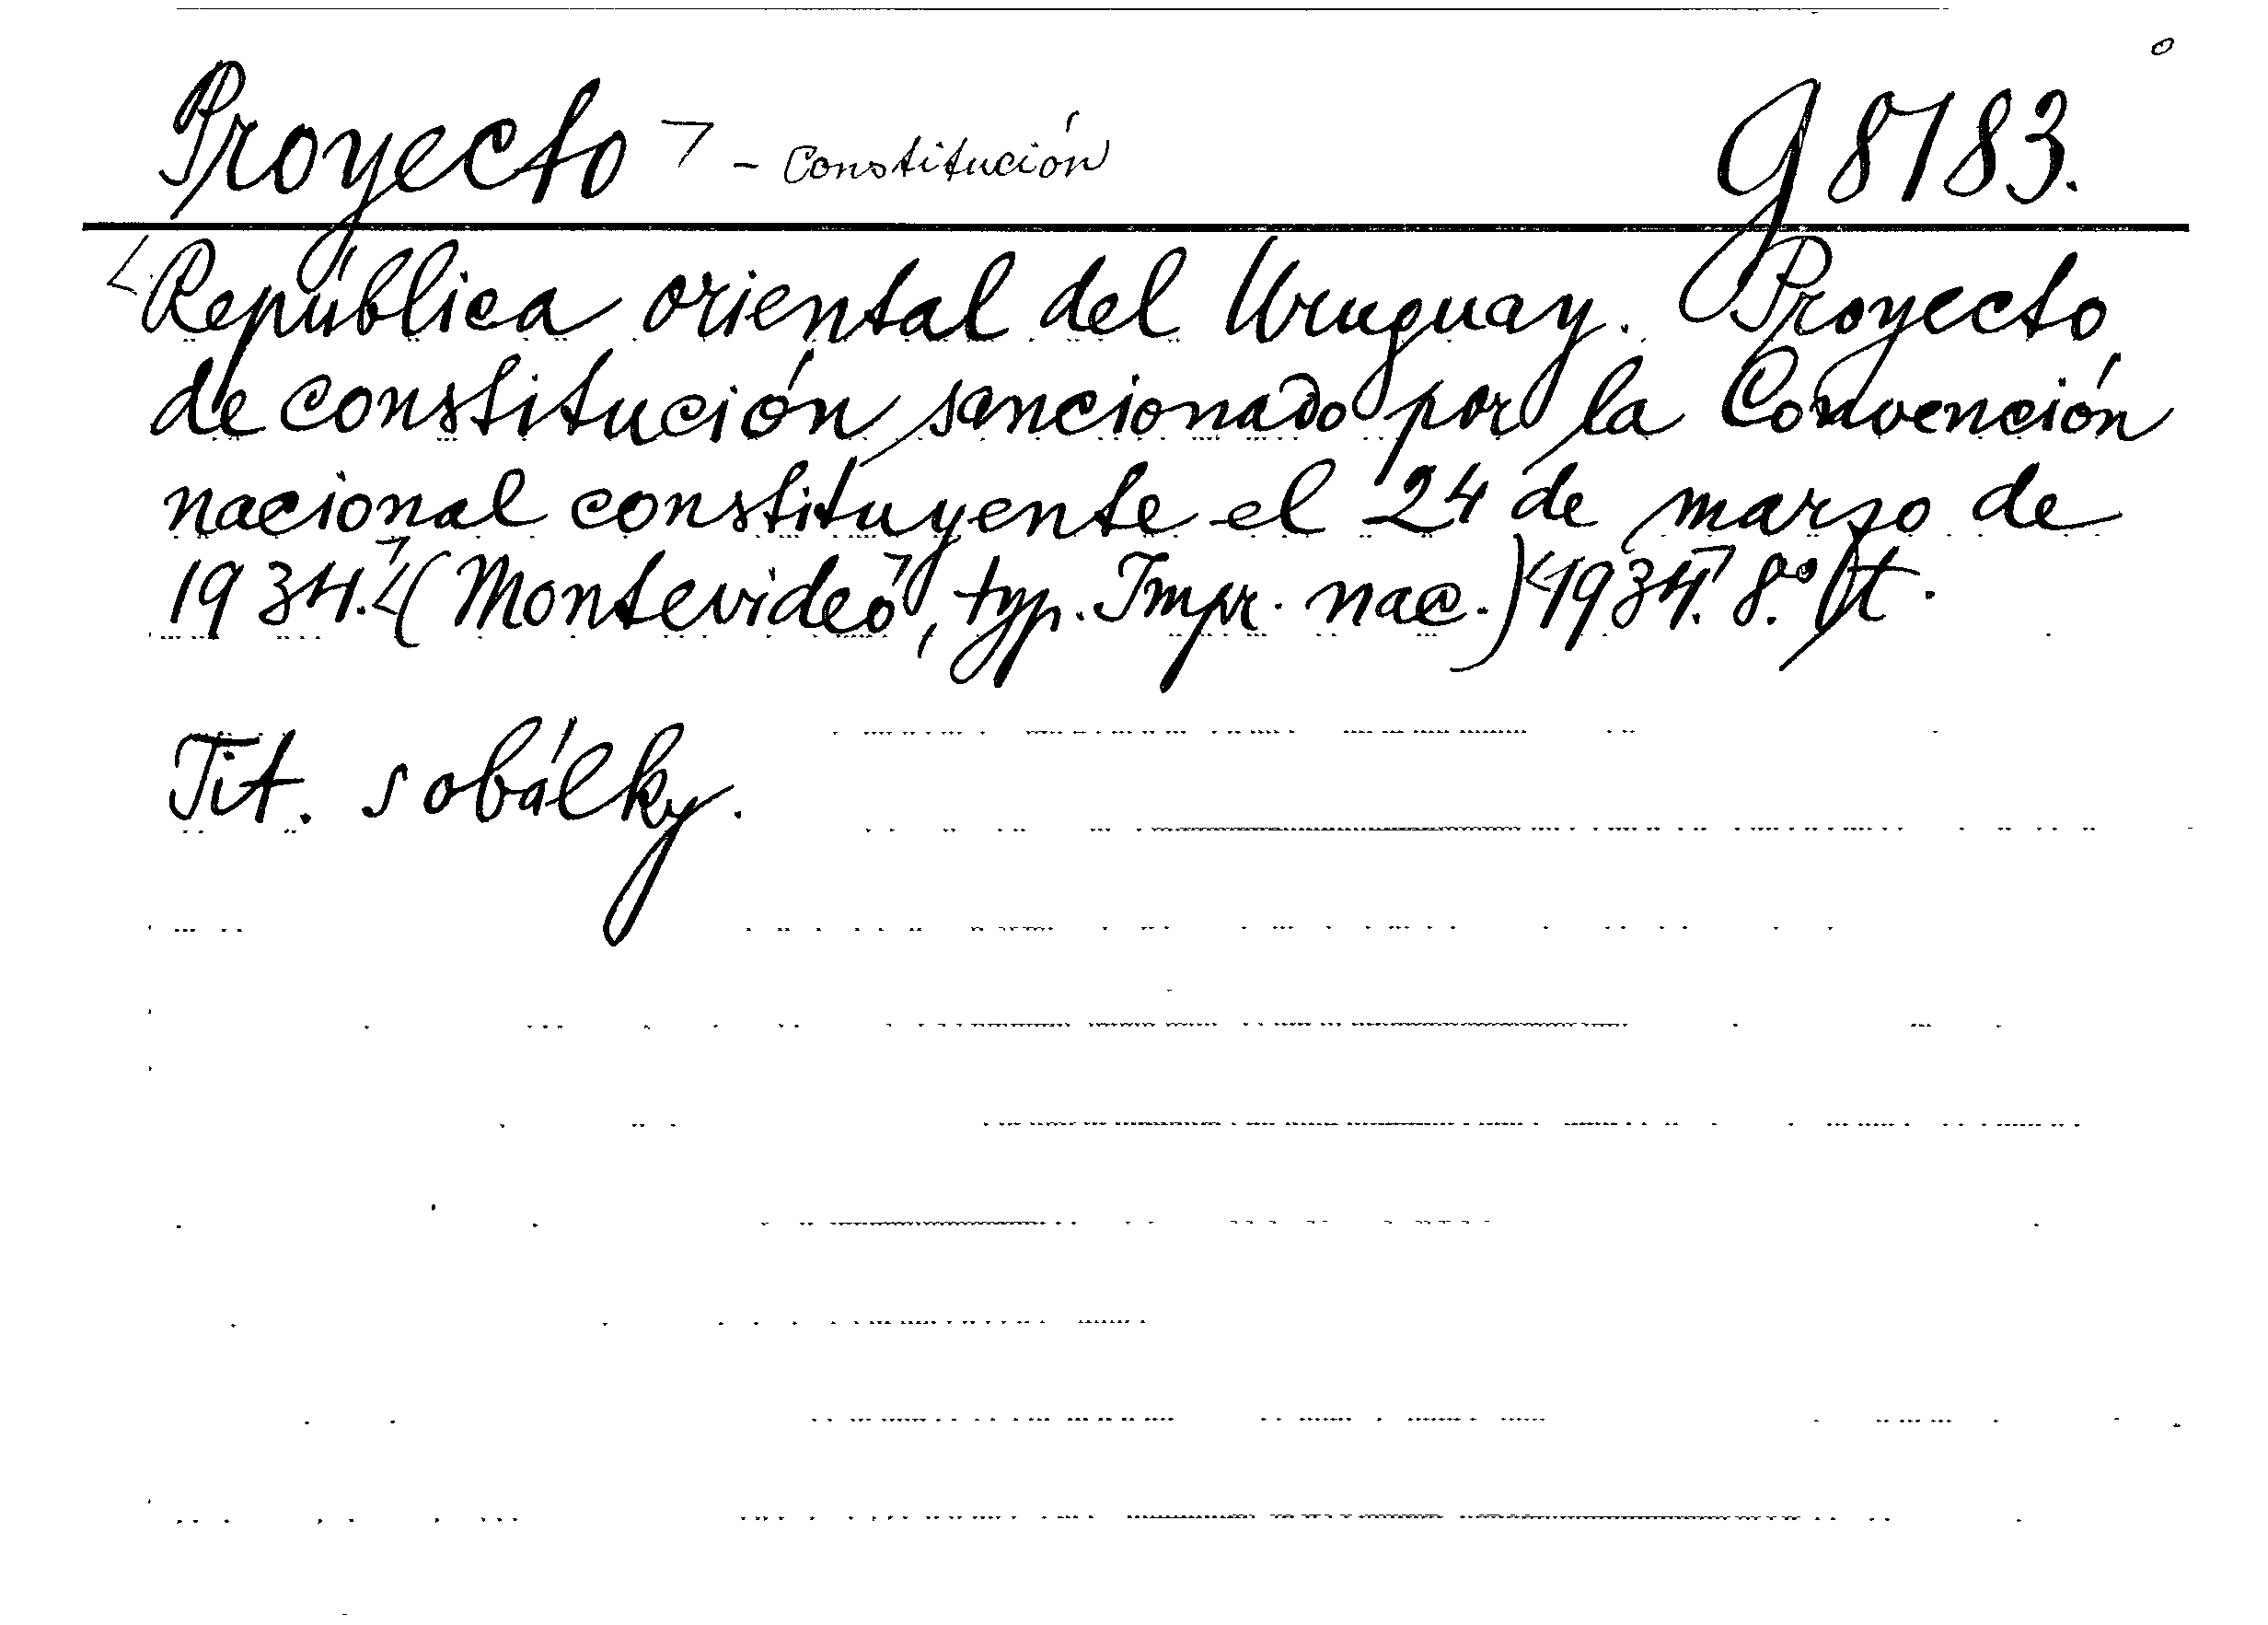 Proyecto - Constitución g 8183.
República oriental del Uruguay. Proyecto
de constitución sancionado por la Convención
nacional constituyente el 24 de marzo de
1934. (Montevideo, typ. Impr. nac.) 1934. 8.° /t.
Tit. s obálky.